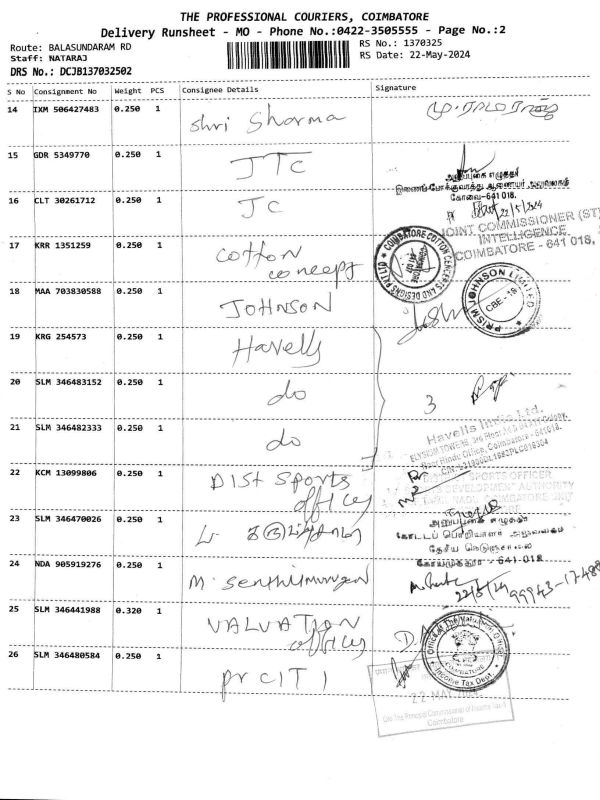 THE PROFESSIONAL COURIERS, COIMBATORE
Delivery Runsheet - MO - Phone No.:0422-3505555 - Page No.:2
Route: BALASUNDARAM RD
RS No.: 1370325
Staff: NATARAJ
RS Date: 22-May-2024
DRS No.: DCJB137032502
S No Consignment No Weight PCS Consignee Details Signature
14 IXM 506427483 0.250 1 Shri Sharma
15 GDR 5349770 0.250 1 JTC
அலுவலகம்
கோவை-641 018.
16 CLT 30261712 0.250 1 JC
22/5/2024
JOINT COMMISSIONER (ST)
INTELLIGENCE
COIMBATORE - 641 018.
17 KRR 1351259 0.250 1 Cotton concept
COIMBATORE COTTON CONCEPTS AND DESIGNS P LTD
18 MAA 703830588 0.250 1 JOHNSON
PRISM JOHNSON LIMITED
CBE - 18
19 KRG 254573 0.250 1 Havells
20 SLM 346483152 0.250 1 do
3
21 SLM 346482333 0.250 1 do
Havells India Ltd.
22 KCM 13099806 0.250 1 Dist Sports office
SPORTS OFFICER
DEVELOPMENT AUTHORITY
23 SLM 346470026 0.250 1
கோட்டப் பொறியாளர் அலுவலகம்
தேசிய நெடுஞ்சாலை
641-018
24 NDA 905919276 0.250 1 M. Senthilmurugan
22/5/24 99943-17488
25 SLM 346441988 0.320 1 VALVATION office
Income Tax Dept.
26 SLM 346480584 0.250 1 pr CIT 1
22 MAY
O/o The Principal Commissioner of Income Tax-1
Coimbatore